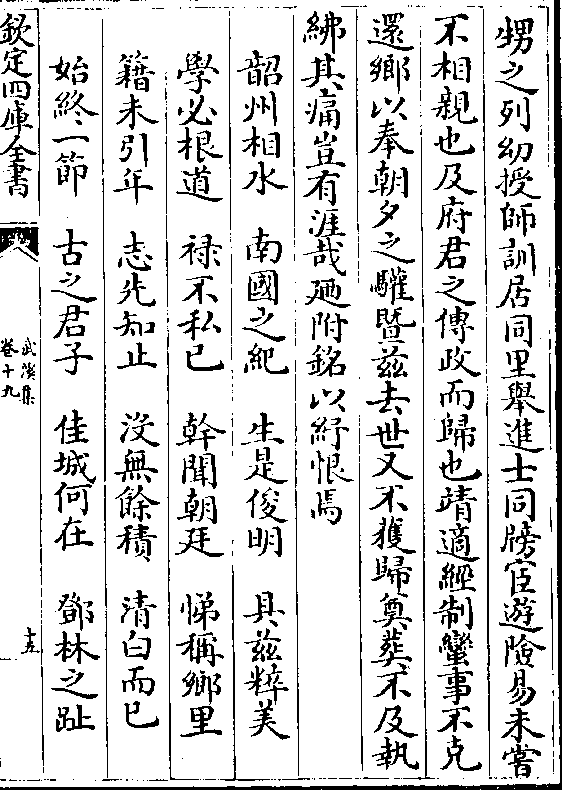 甥之列幼授師訓居同里舉進士同牓宦遊險易未嘗
不相親也及府君之傳政而歸也靖適經制蠻事不克
還鄉以奉朝夕之驩暨兹去世又不獲歸奠葬不及執
紼其痛豈有涯哉廼附銘以紓恨焉
韶州相水 南國之紀 生是俊明 具兹粹美
學必根道 禄不私已 幹聞朝廷 悌稱鄉里
籍未引年 志先知止 沒無餘積 清白而已
始終一節 古之君子 佳城何在 鄧林之趾
欽定四庫全書
武溪集
卷十九
十五